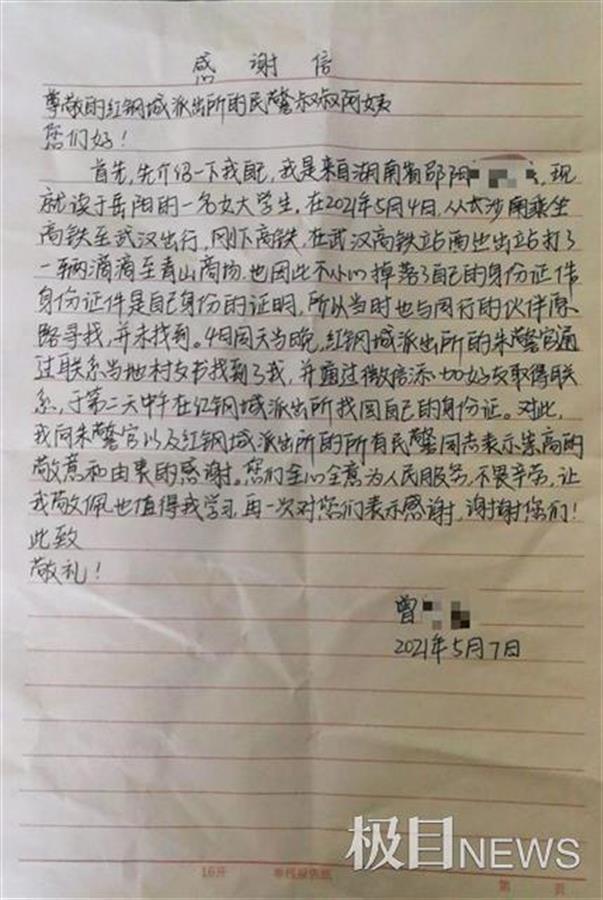 感谢信
尊敬的红钢城派出所的民警叔叔阿姨
您们好！
首先，先介绍一下我自己，我是来自湖南省邵阳，现
就读于岳阳的一名女大学生。在2021年5月4日，从长沙南乘坐
高铁至武汉出行，刚下高铁，在武汉高铁站西边出站打了
一辆滴滴至青山商场，也因此不小心掉落了自己的身份证件
身份证件是自己身份的证明，所以当时也与同行的伙伴原
路寻找，并未找到。4日同天当晚，红钢城派出所的朱警官通
过联系当地村支书找到了我，并通过微信添加好友取得联
系，于第二天中午在红钢城派出所找回自己的身份证。对此，
我向朱警官以及红钢城派出所的所有民警同志表示崇高的
敬意和由衷的感谢。您们全心全意为人民服务，不畏辛劳，让
我敬佩也值得我学习，再一次对您们表示感谢，谢谢您们！
此致
敬礼！
曾
2021年5月7日
极目NEWS
16开
第 页